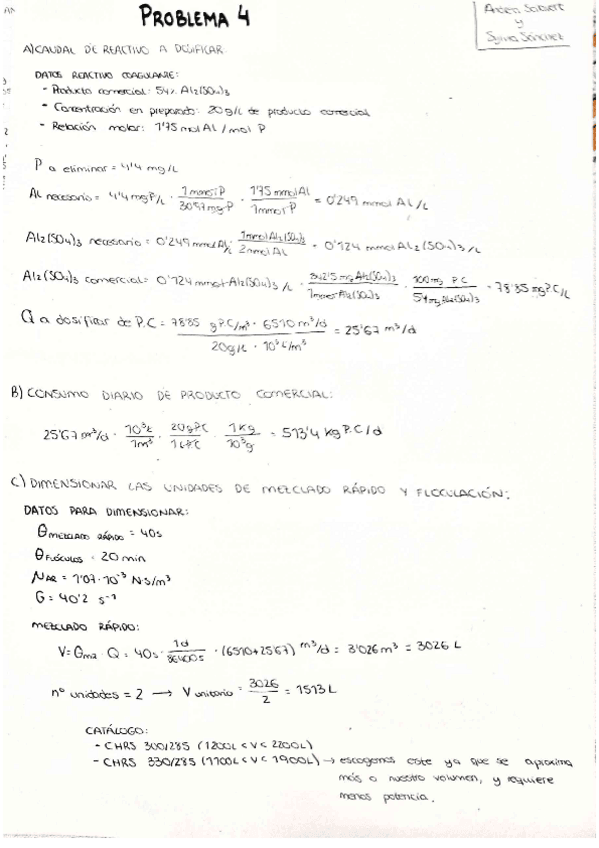 PROBLEMA 4
y
Sylvia Sánchez
A) CAUDAL DE REACTIVO A DOSIFICAR
DATOS REACTIVO COAGULANTE:
- Producto comercial: 54% Al2(SO4)3
- Concentración en preparado: 20 g/L de producto comercial
- Relación molar: 1'75 mol Al / mol P
P a eliminar = 4'4 mg/L
Al necesario = 4'4 mg P/L · 1 mmol P / 30'97 mg P · 1'75 mmol Al / 1 mmol P = 0'249 mmol Al/L
Al2(SO4)3 necesario = 0'249 mmol Al/L · 1 mmol Al2(SO4)3 / 2 mmol Al = 0'124 mmol Al2(SO4)3/L
Al2(SO4)3 comercial = 0'124 mmol Al2(SO4)3/L · 342'15 mg Al2(SO4)3 / 1 mmol Al2(SO4)3 · 100 mg P.C / 54 mg Al2(SO4)3 = 78'85 mg P.C/L
Q a dosificar de P.C = 78'85 g P.C/m³ · 6510 m³/d / 20 g/L · 10³ L/m³ = 25'67 m³/d
B) CONSUMO DIARIO DE PRODUCTO COMERCIAL:
25'67 m³/d · 10³ L / 1 m³ · 20 g PC / 1 L PC · 1 Kg / 10³ g = 513'4 Kg P.C/d
C) DIMENSIONAR LAS UNIDADES DE MEZCLADO RÁPIDO Y FLOCULACIÓN:
DATOS PARA DIMENSIONAR:
θ MEZCLADO RÁPIDO = 40s
θ FLÓCULOS = 20 min
μ AR = 1'07 · 10⁻³ N·s/m³
G = 40'2 s⁻¹
MEZCLADO RÁPIDO:
V = θmr · Q = 40s · 1d / 86400s · (6510 + 25'67) m³/d = 3'026 m³ = 3026 L
nº unidades = 2 → V unitario = 3026 / 2 = 1513 L
CATÁLOGO:
- CHRS 300/285 (1200L < V < 2200L)
- CHRS 330/285 (1100L < V < 1900L) → escogemos este ya que se aproxima
más a nuestro volumen, y requiere
menos potencia.